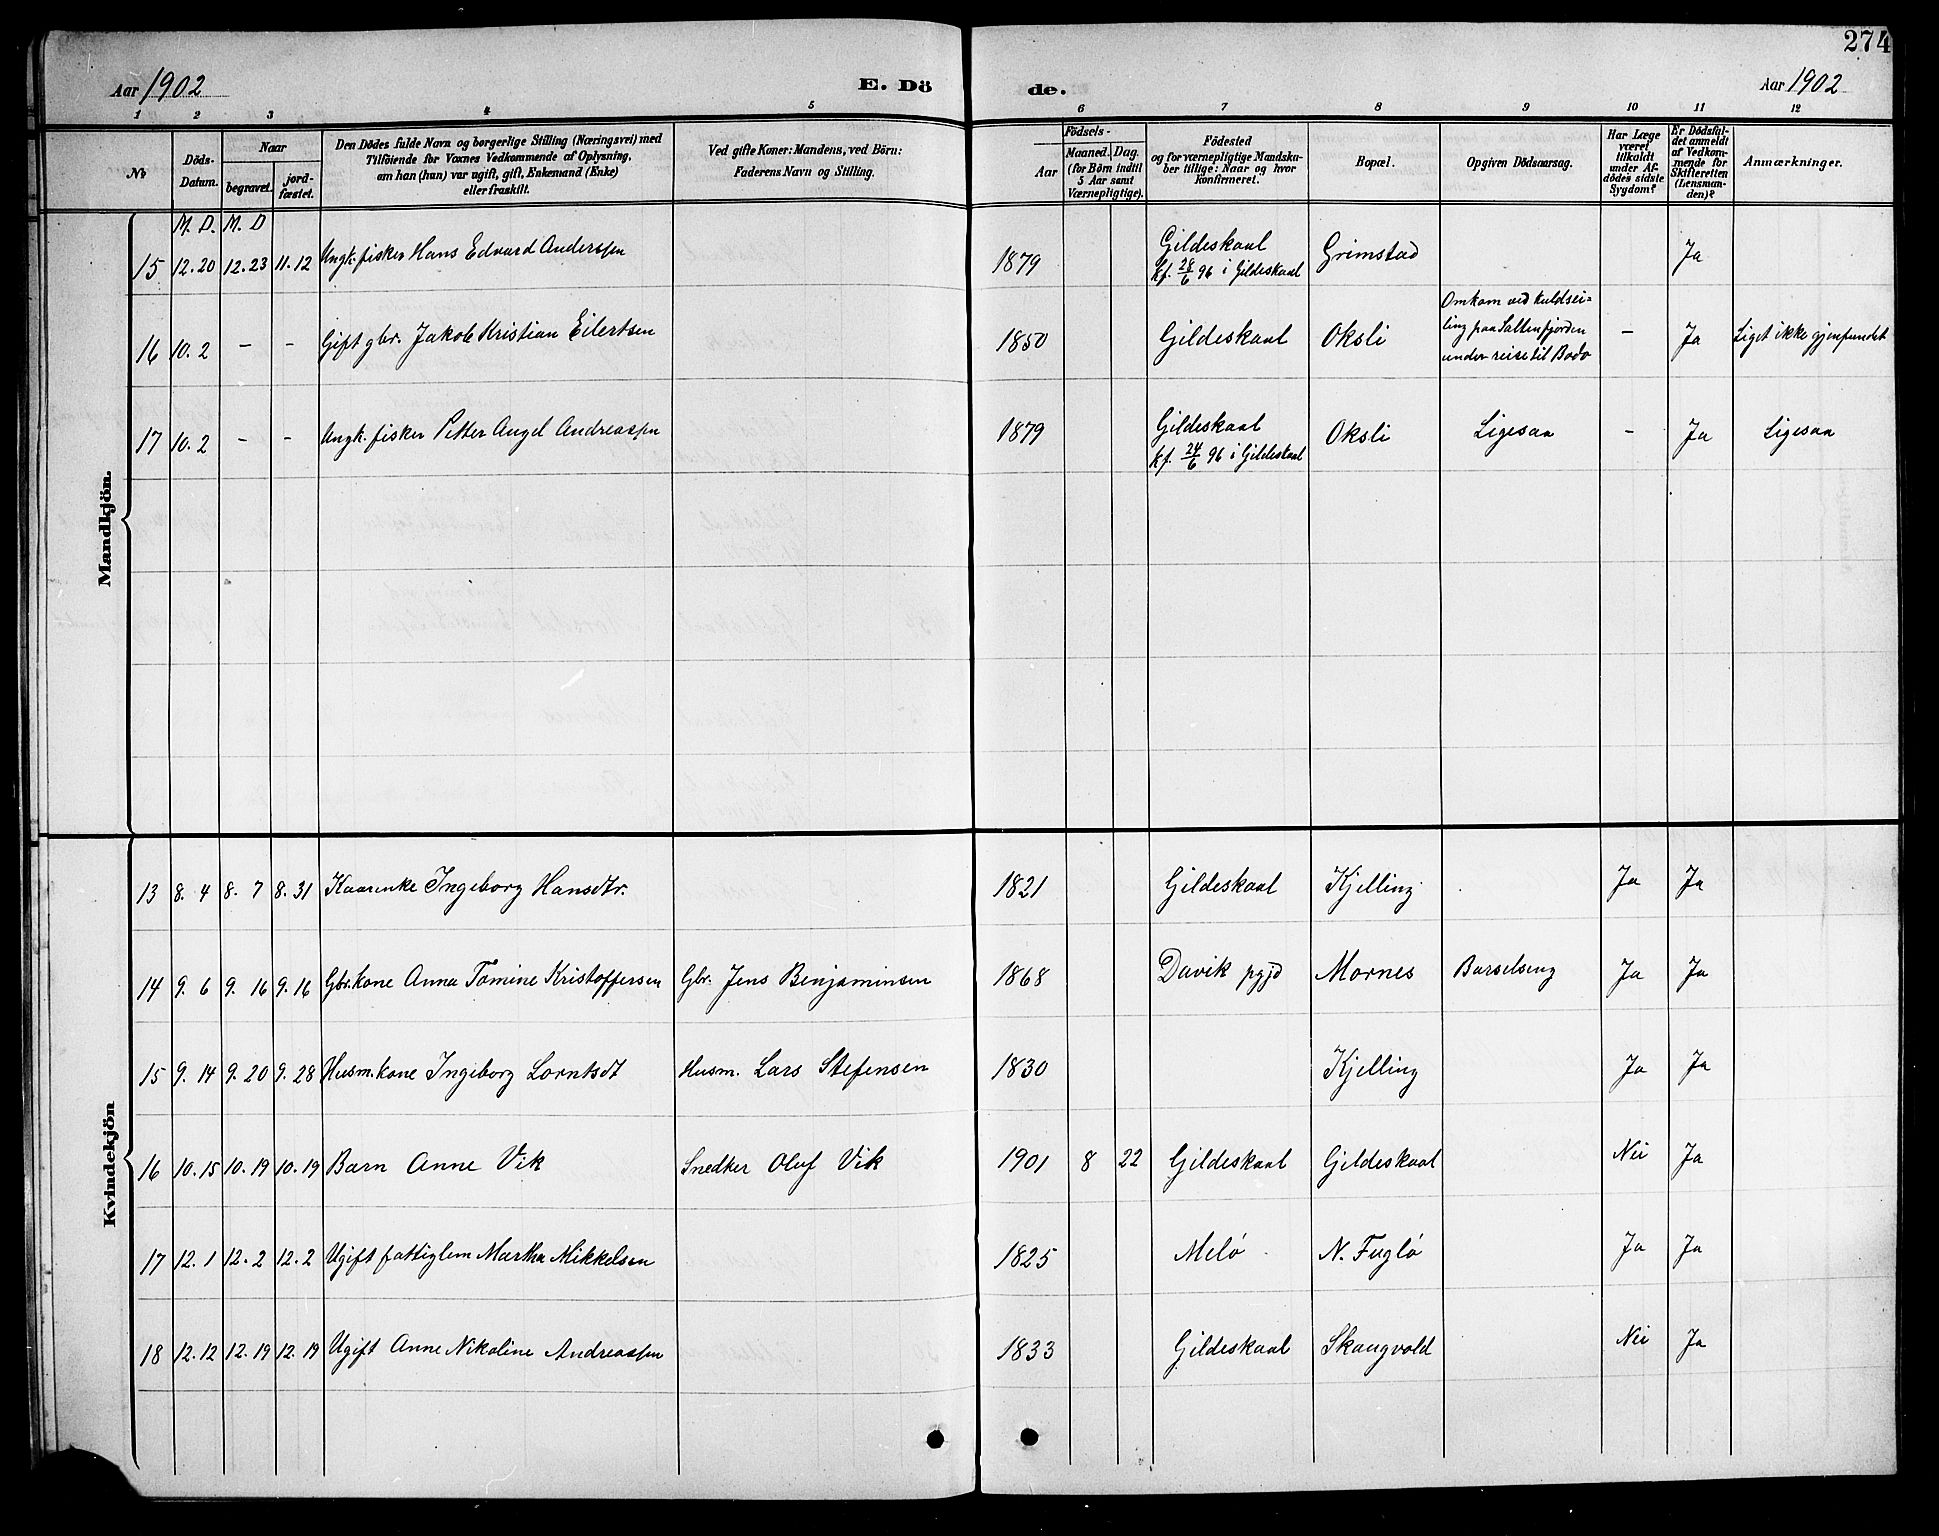 274
Aar 1902 E. Dö de. Aar 1902
1 2 3 4 5 6 7 8 9 10 11 12
No
Döds-Datum.
Naar
begravet.
jord-fæstet.
Den Dödes fulde Navn og borgerlige Stilling (Næringsvei) med
Tilföiende for Voxnes Vedkommende af Oplysning,
om han (hun) var ugift, gift, Enkemand (Enke)
eller fraskilt.
Ved gifte Koner: Mandens, ved Börn:
Faderens Navn og Stilling.
Födsels-
Aar
Maaned. Dag.
(for Börn indtil
5 Aar samt
Værnepligtige).
Födested
og for værnepligtige Mandska-
ber tillige: Naar og hvor
konfirmeret.
Bopæl.
Opgiven Dödsaarsag.
Har Læge
været
tilkaldt
under Af-
dödes sidste
Sygdom?
Er Dödsfal-
det anmeldt
af Vedkom-
mende for
Skifteretten
(Lensman-
den)?
Anmærkninger.
Mandkjön.
M. D. M. D
15 12.20 12.23 11.12 Ungk. fisker Hans Edvard Anderssen 1879 Gildeskaal Grimstad Ja
kf. 28/6 96 i Gildeskaal
16 10.2 - - Gift gbr. Jakob Kristian Eilertsen 1850 Gildeskaal Oksli Omkom ved kuldsei=
ling paa Saltenfjorden
under reise til Bodø - Ja Liget ikke gjenfundet
17 10.2 - - Ungk. fisker Petter Angel Andreassen 1879 Gildeskaal Oksli Ligesaa - Ja Ligesaa
kf. 24/6 96 i Gildeskaal
Kvindekjön
13 8.4 8.7 8.31 Kaarenke Ingeborg Hansdtr. 1821 Gildeskaal Kjelling Ja Ja
14 9.6 9.16 9.16 Gbr.kone Anna Tomine Kristoffersen Gbr. Jens Benjaminsen 1868 Davik pgjd Mornes Barselseng Ja Ja
15 9.14 9.20 9.28 Husm.kone Ingeborg Lorntsdt Husm. Lars Stefensen 1830 Kjelling Ja Ja
16 10.15 10.19 10.19 Barn Anne Vik Snedker Oluf Vik 1901 8 22 Gildeskaal Gildeskaal Nei Ja
17 12.1 12.2 12.2 Ugift fattiglem Martha Mikkelsen 1825 Melø N. Fuglø Ja Ja
18 12.12 12.19 12.19 Ugift Anne Nikoline Andreassen 1833 Gildeskaal Skaugvold Nei Ja